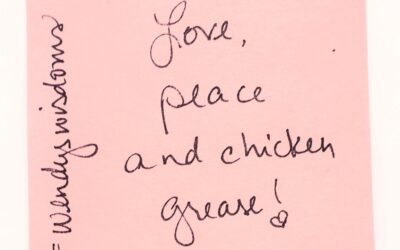 Love,
peace
and chicken
grease!
#wendyswisdoms